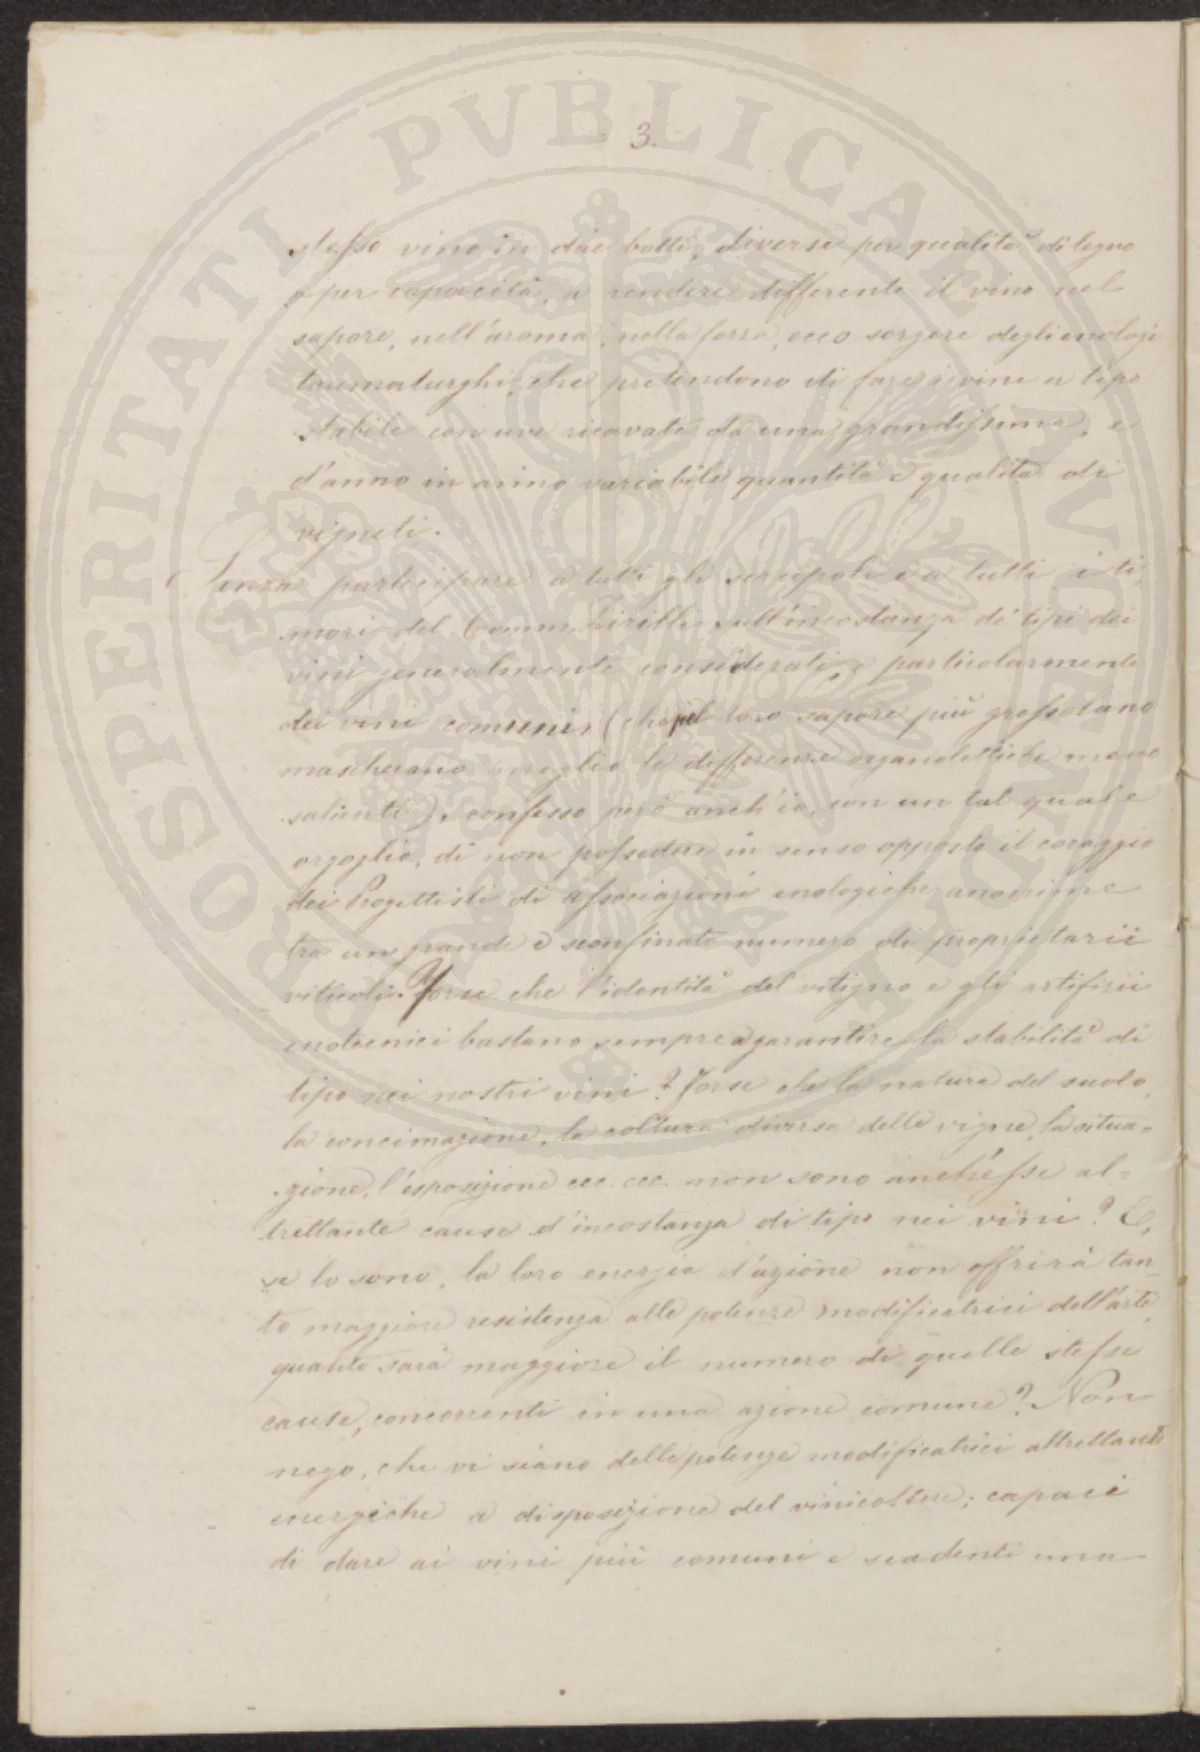 3.
stesso vino in due botti, diverse per qualità di legno
o per capacità, a rendere differente il vino nel
sapore, nell'aroma, nella forza, ecco sorgere degli enologi
taumaturghi, che pretendono di fare vini a tipo
stabile con uve ricavate da una grandissima, e
d'anno in anno variabile quantità e qualità di
vigneti.
Senza partecipare a tutti gli scrupoli e a tutti i ti,
mori del Comm. sull'incostanza de' tipi dei
vini generalmente considerati, e particolarmente
dei vini comuni, (che pel loro sapore più grossolano
mascherano meglio le differenze organolettiche meno
salienti), confesso però anch'io, con un tal quale
orgoglio, di non possedere in senso opposto il coraggio
dei Progettisti di associazioni enologiche anonime
tra un grande e sconfinato numero di proprietarii
viticoli. Forse che l'identità del vitigno e gli artifizii
enotecnici bastano sempre a garantire la stabilità di
tipo nei nostri vini? Forse che la natura del suolo,
la concimazione, la coltura diversa delle vigne, la situa=
zione, l'esposizione ecc. ecc. non sono anch'esse al=
trettante cause d'incostanza di tipo nei vini? E,
se lo sono, la loro energia d'azione non offrirà tan-
to maggiore resistenza alle potenze modificatrici dell'arte,
quanto sarà maggiore il numero di quelle stesse
cause, concorrenti in una azione comune? Non
nego, che vi siano delle potenze modificatrici altrettanto
energiche a disposizione del vinicoltore; capaci
di dare ai vini più comuni e scadenti una
PROSPERITATI PVBLICAE